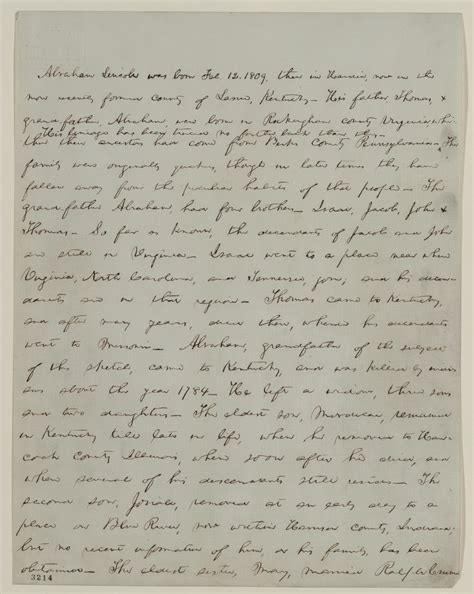 Abraham Lincoln was born Feb. 12. 1809, then in Hardin, now in the
more recently formed county of Larue, Kentucky— His father, Thomas, &
grand-father, Abraham, were born in Rockingham county Virginia, whi-
ther their ancestors had come from Berks County Pennsylvania— The
His lineage has been traced no farther back than this—
family were originally quakers, though in later times they have
fallen away from the peculiar habits of that people— The
grand-father Abraham, had four brothers— Isaac, Jacob, John &
Thomas— So far as known, the descendants of Jacob and John
are still in Virginia— Isaac went to a place near where
Virginia, North Carolina, and Tennessee, join; and his decen-
dants are in that region— Thomas came to Kentucky,
and after many years, died there, whence his decendants
went to Missouri— Abraham, grandfather of the subject
of this sketch, came to Kentucky, and was killed by indi-
ans about the year 1784— He left a widow, three sons
and two daughters— The eldest son, Mordecai, remained
in Kentucky till late in life, when he removed to Han-
cock county Illinois, where soon after he died, and
where several of his descendants still reside— The
second son, Josiah, removed at an early day to a
place on Blue River, now within Harrison county, Indiana;
but no recent information of him, or his family, has been
obtained— The eldest sister, Mary, married Ralph Crume
3214